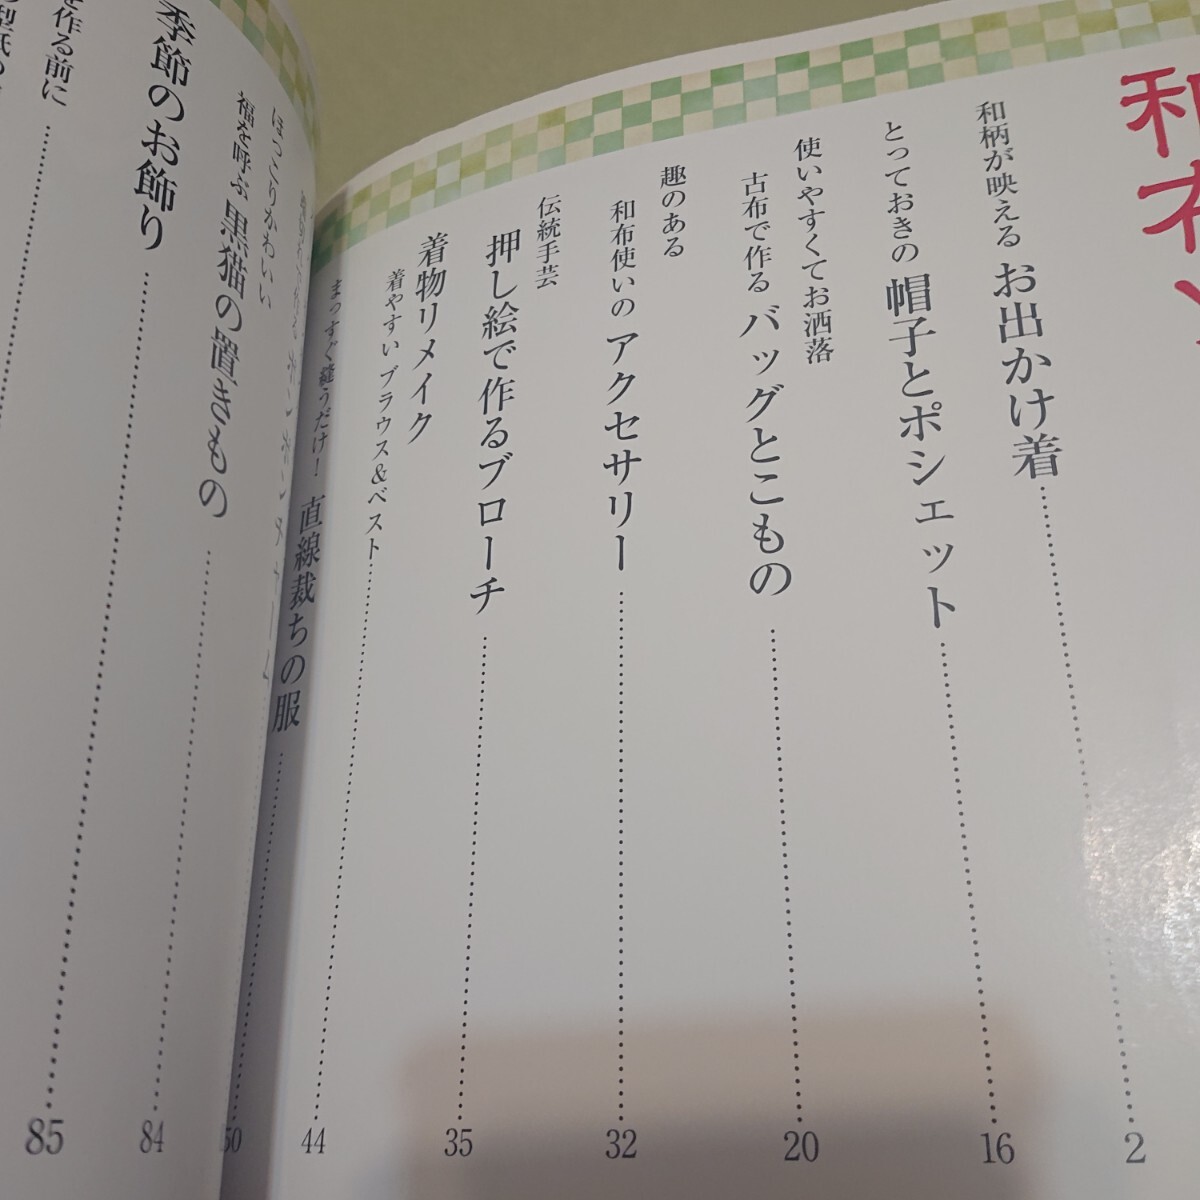 和布
和柄が映える お出かけ着……2
とっておきの 帽子とポシェット……16
使いやすくてお洒落
古布で作る バッグとこもの……20
趣のある
和布使いの アクセサリー……32
伝統手芸
押し絵で作るブローチ……35
着物リメイク
着やすい ブラウス&ベスト……44
まっすぐ縫うだけ! 直線裁ちの服……50
ほっこりかわいい
福を呼ぶ 黒猫の置きもの……84
季節のお飾り……85
を作る前に